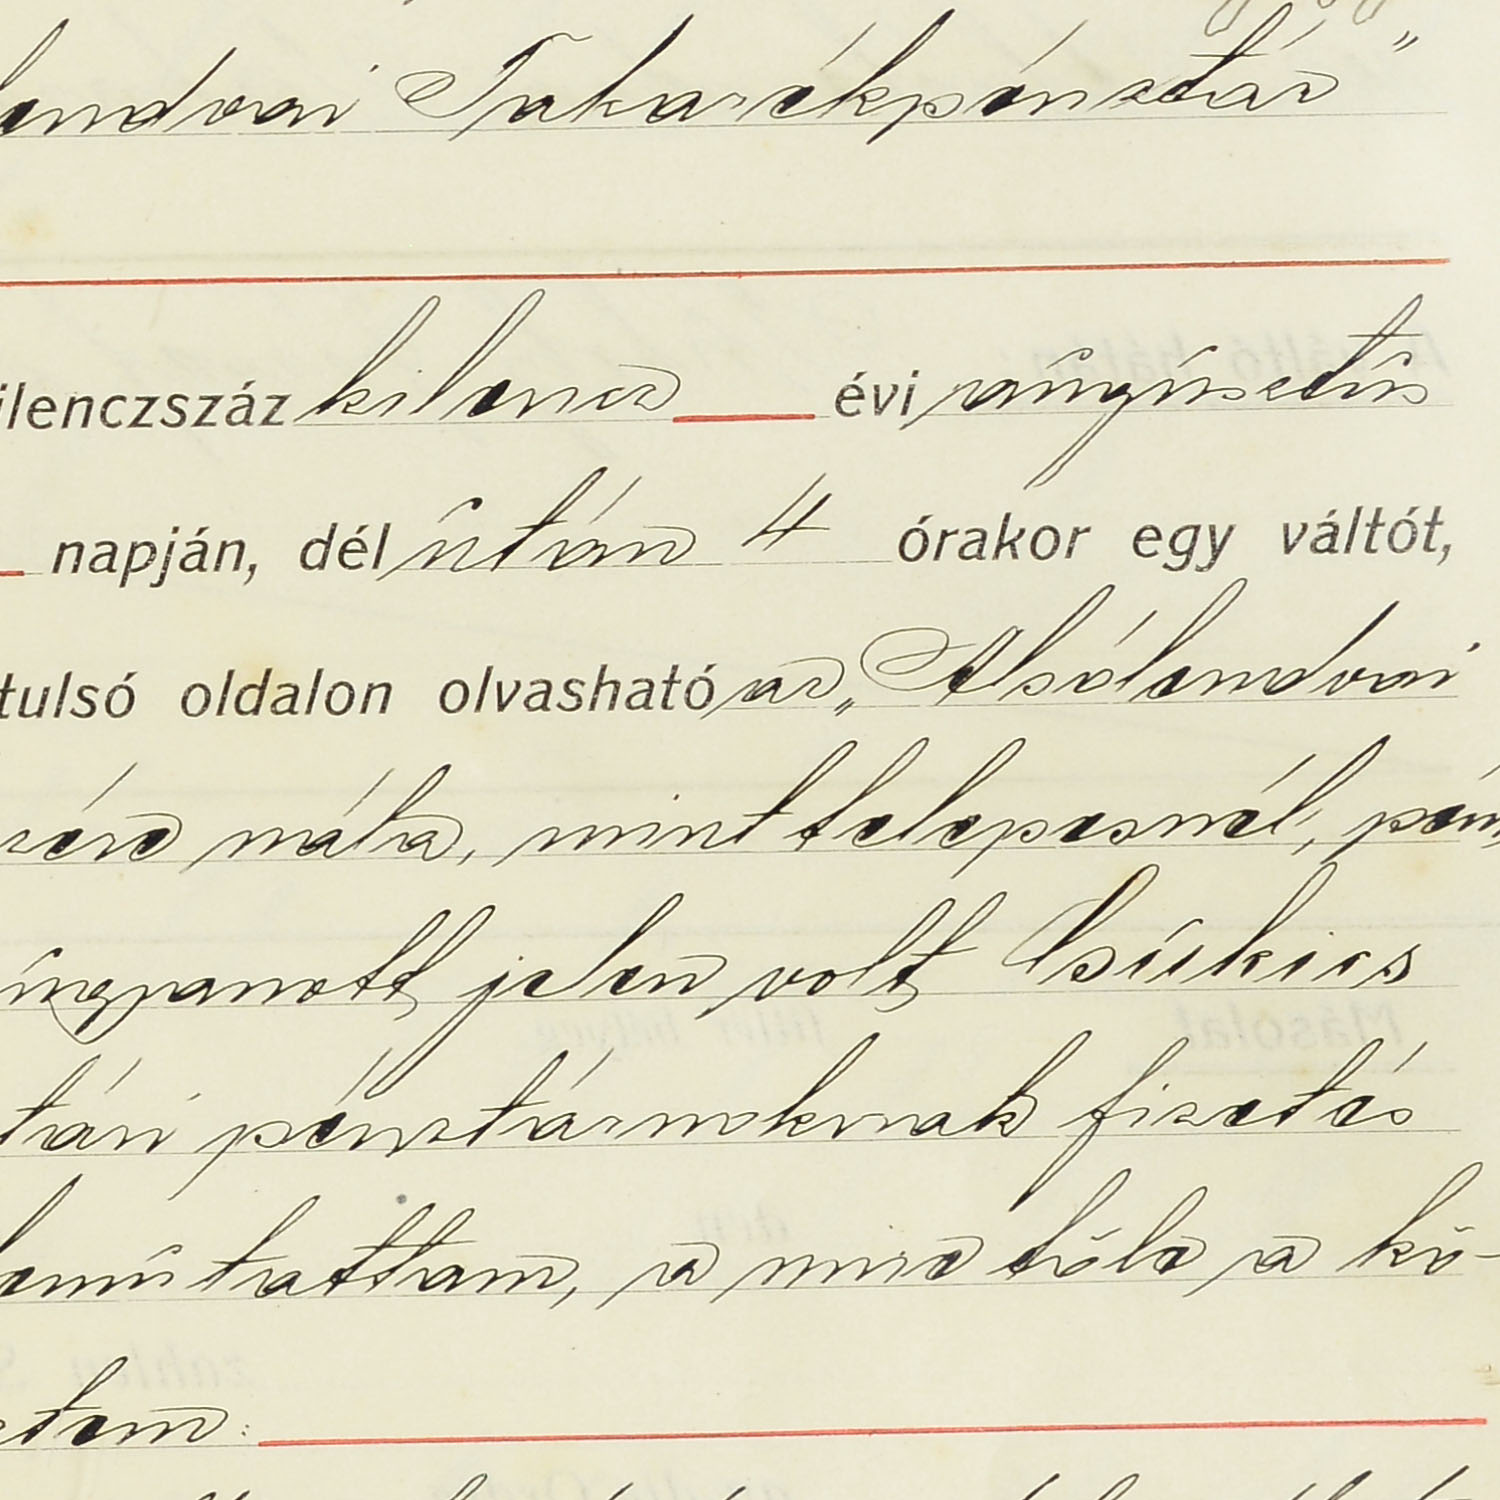 lendvai Takarékpénztár"
ilenczszáz kilencz évi augusztus
napján, dél után 4 órakor egy váltót,
tulsó oldalon olvasható az „Alsólendvai
részvé nála, mint telepesnél, pén,
ugyanott jelen volt Csukics
tári pénztárnoknak fizetés
lemutattam, a mire tőle a kö-
etem: